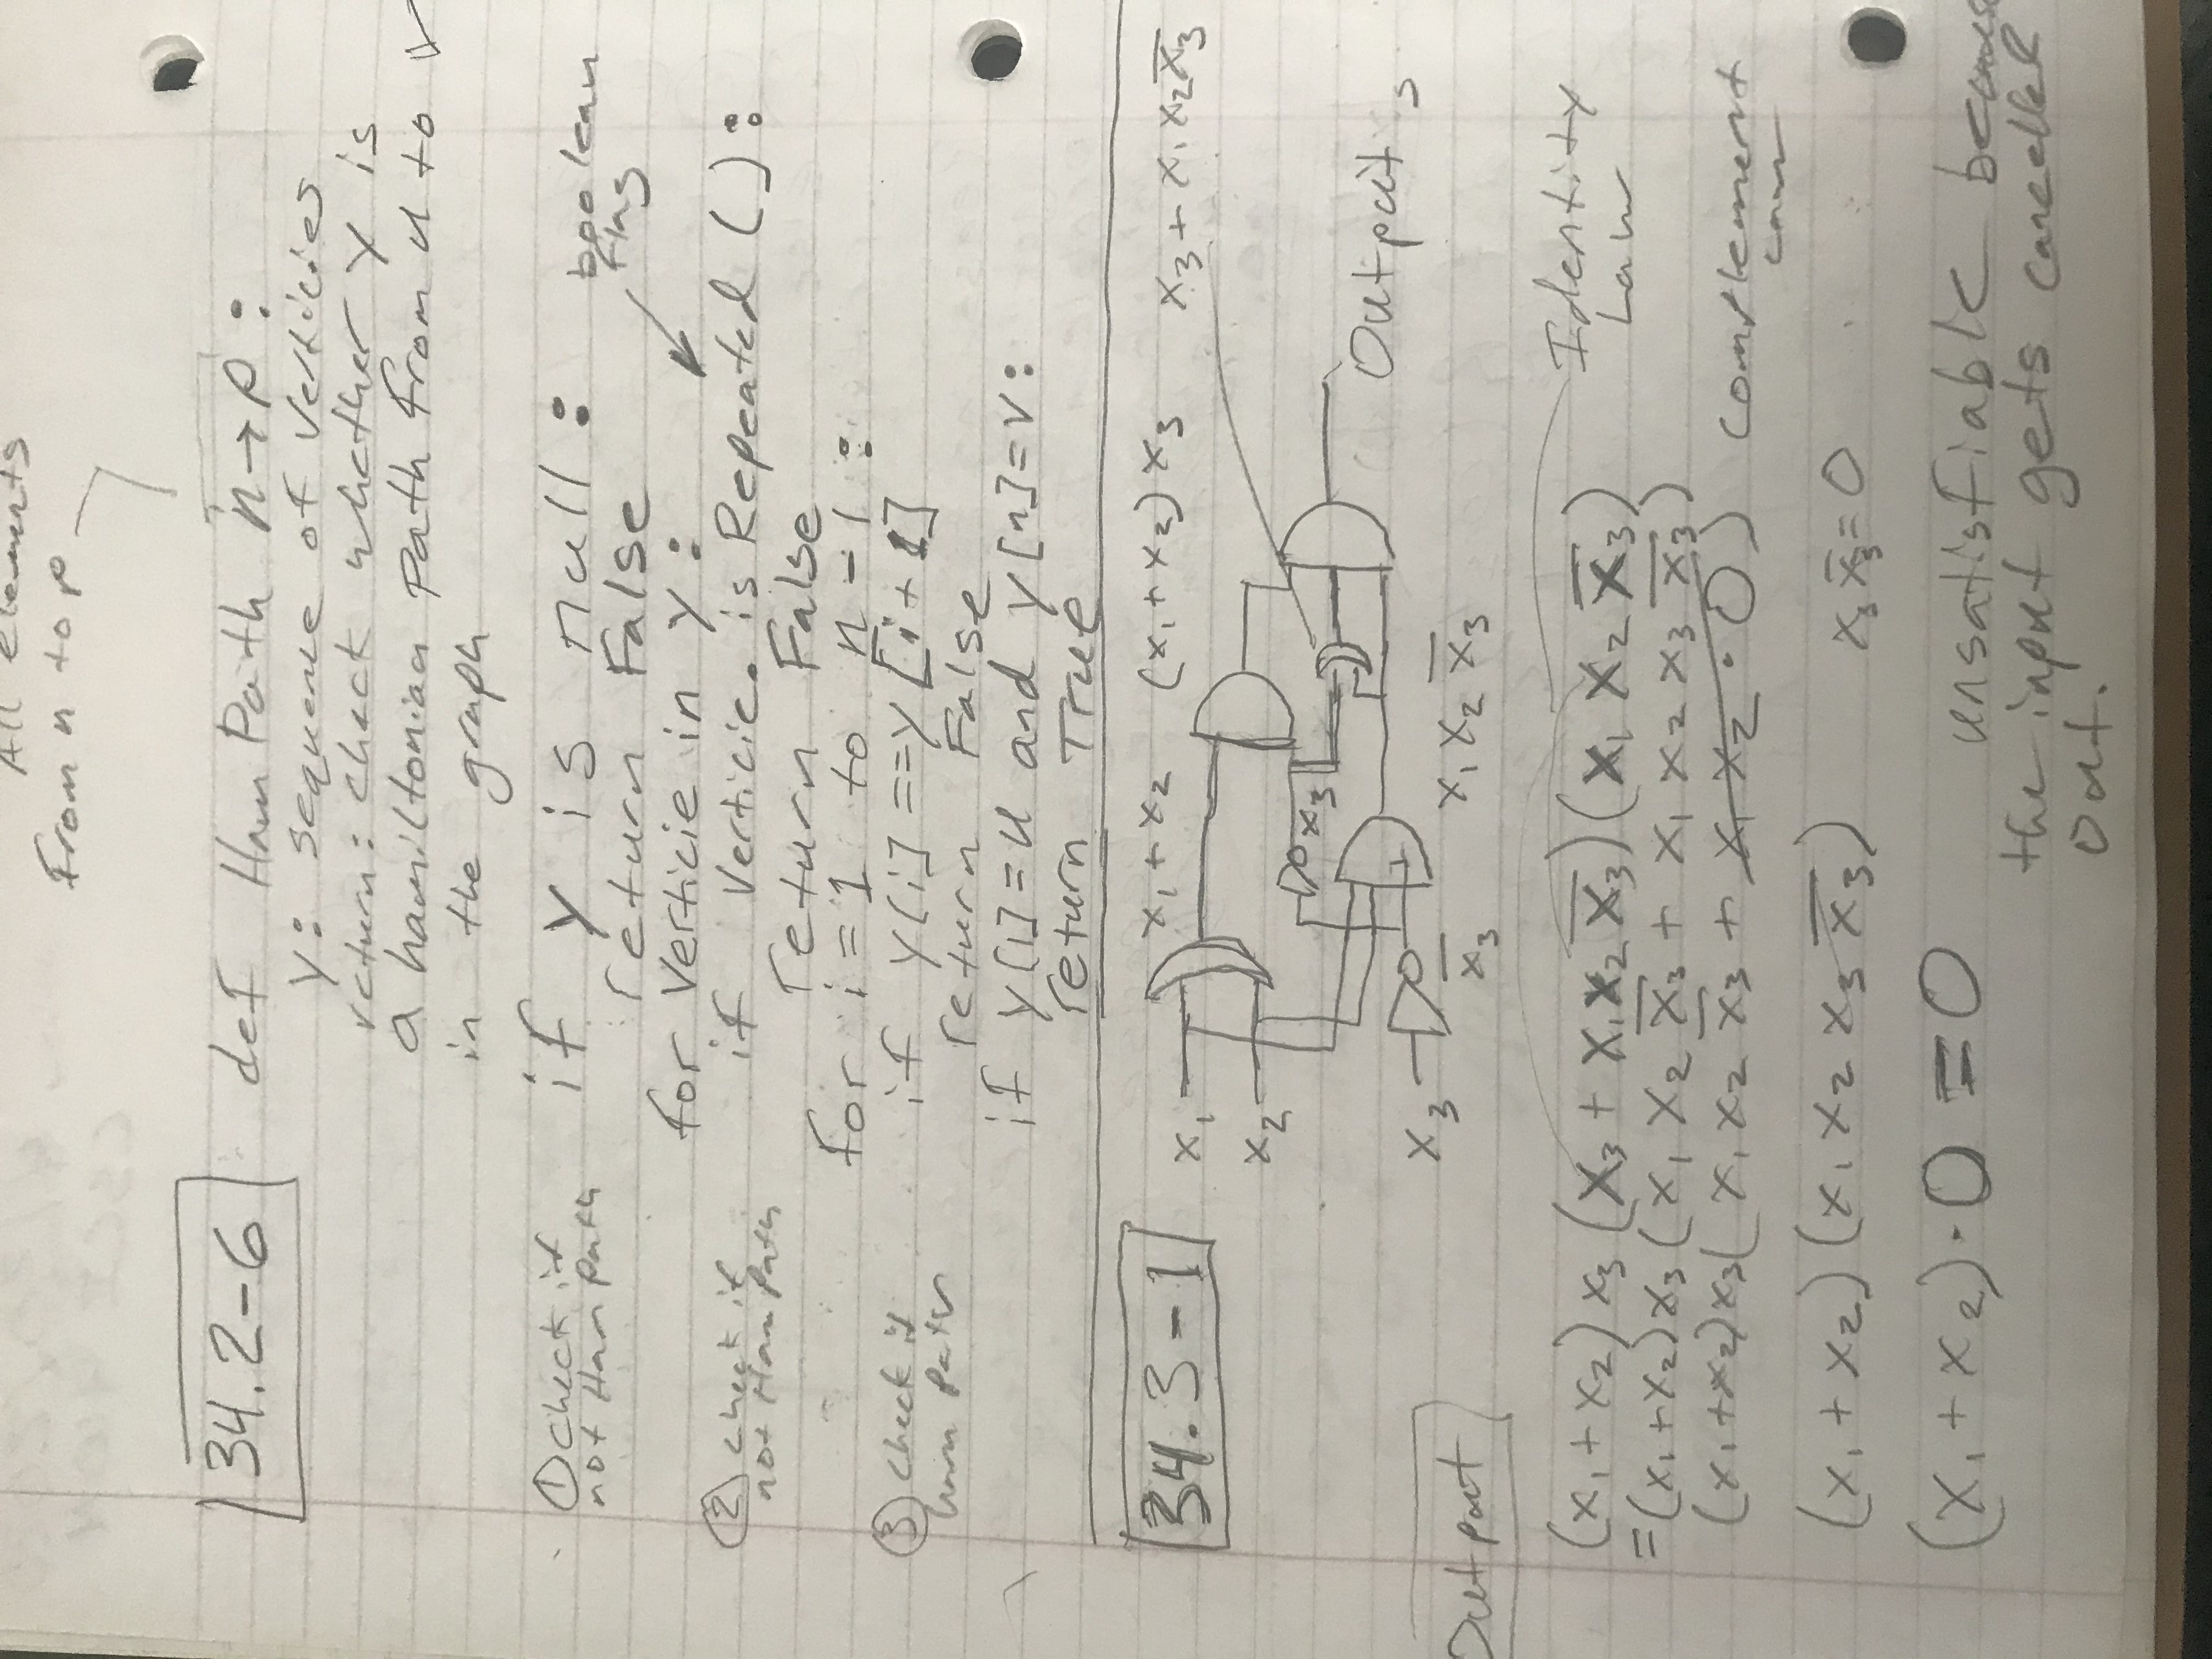 All elements
From n to p
34.2-6
def Ham Path n→p :
y: sequence of Verticies
return: check whether y is
a hamiltonian path from u to v
in the graph
① Check if
not Ham Path
if y is null :
return False
boolean
flag
for Verticie in y :
② check if
not Ham Path
if Verticie. is Repeated ( ) :
return False
for i = 1 to n - 1 :
③ check if
ham path
if y[i] == y [i+1]
return False
if y[1] = u and y[n] = v :
return True
34.3-1
x₁ + x₂
(x₁ + x₂) x₃
x₃ + x₁ x₂ x̅₃
x₁
x₂
x₃
x₃
x̅₃
x₁ x₂ x̅₃
Output
Output
(x₁ + x₂) x₃ (x₃ + x₁ x₂ x̅₃) (x₁ x₂ x̅₃)
Identity
Law
= (x₁ + x₂) x₃ ( x₁ x₂ x̅₃ + x₁ x₂ x₃ x̅₃ )
(x₁ + x₂) x₃ ( x₁ x₂ x̅₃ + x₁ x₂ · 0 )
Complement
Law
(x₁ + x₂) (x₁ x₂ x₃ x̅₃)
x₃ x̅₃ = 0
(x₁ + x₂) · 0 = 0
unsatisfiable because
the input gets cancelled
out.